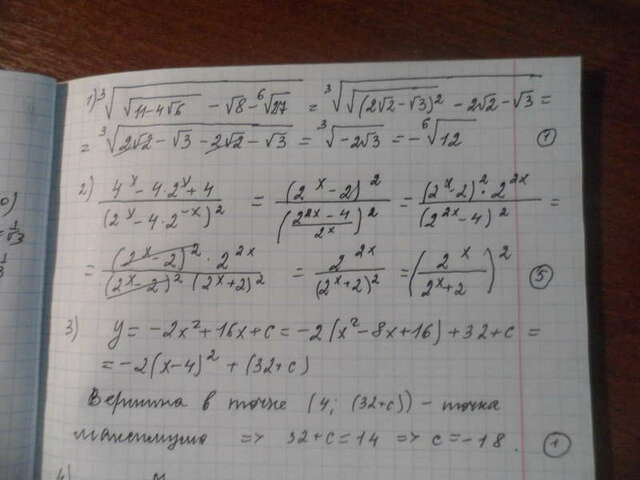 1) ∛(√(11-4√6) - √8 - ⁶√27) = ∛(√((2√2-√3)²) - 2√2 - √3) =
= ∛(2√2 - √3 - 2√2 - √3) = ∛(-2√3) = -⁶√12 (7)
2) (4ˣ - 4·2ˣ + 4)/(2ˣ - 4·2⁻ˣ)² = (2ˣ-2)²/((2²ˣ-4)/2ˣ)² = (2ˣ-2)²·2²ˣ/(2²ˣ-4)² =
= (2ˣ-2)²·2²ˣ/((2ˣ-2)²(2ˣ+2)²) = 2²ˣ/(2ˣ+2)² = (2ˣ/(2ˣ+2))² (5)
3) y = -2x²+16x+c = -2(x²-8x+16)+32+c =
= -2(x-4)² + (32+c)
Вершина в точке (4; (32+c)) - точка
максимума => 32+c=14 => c=-18. (1)
4)